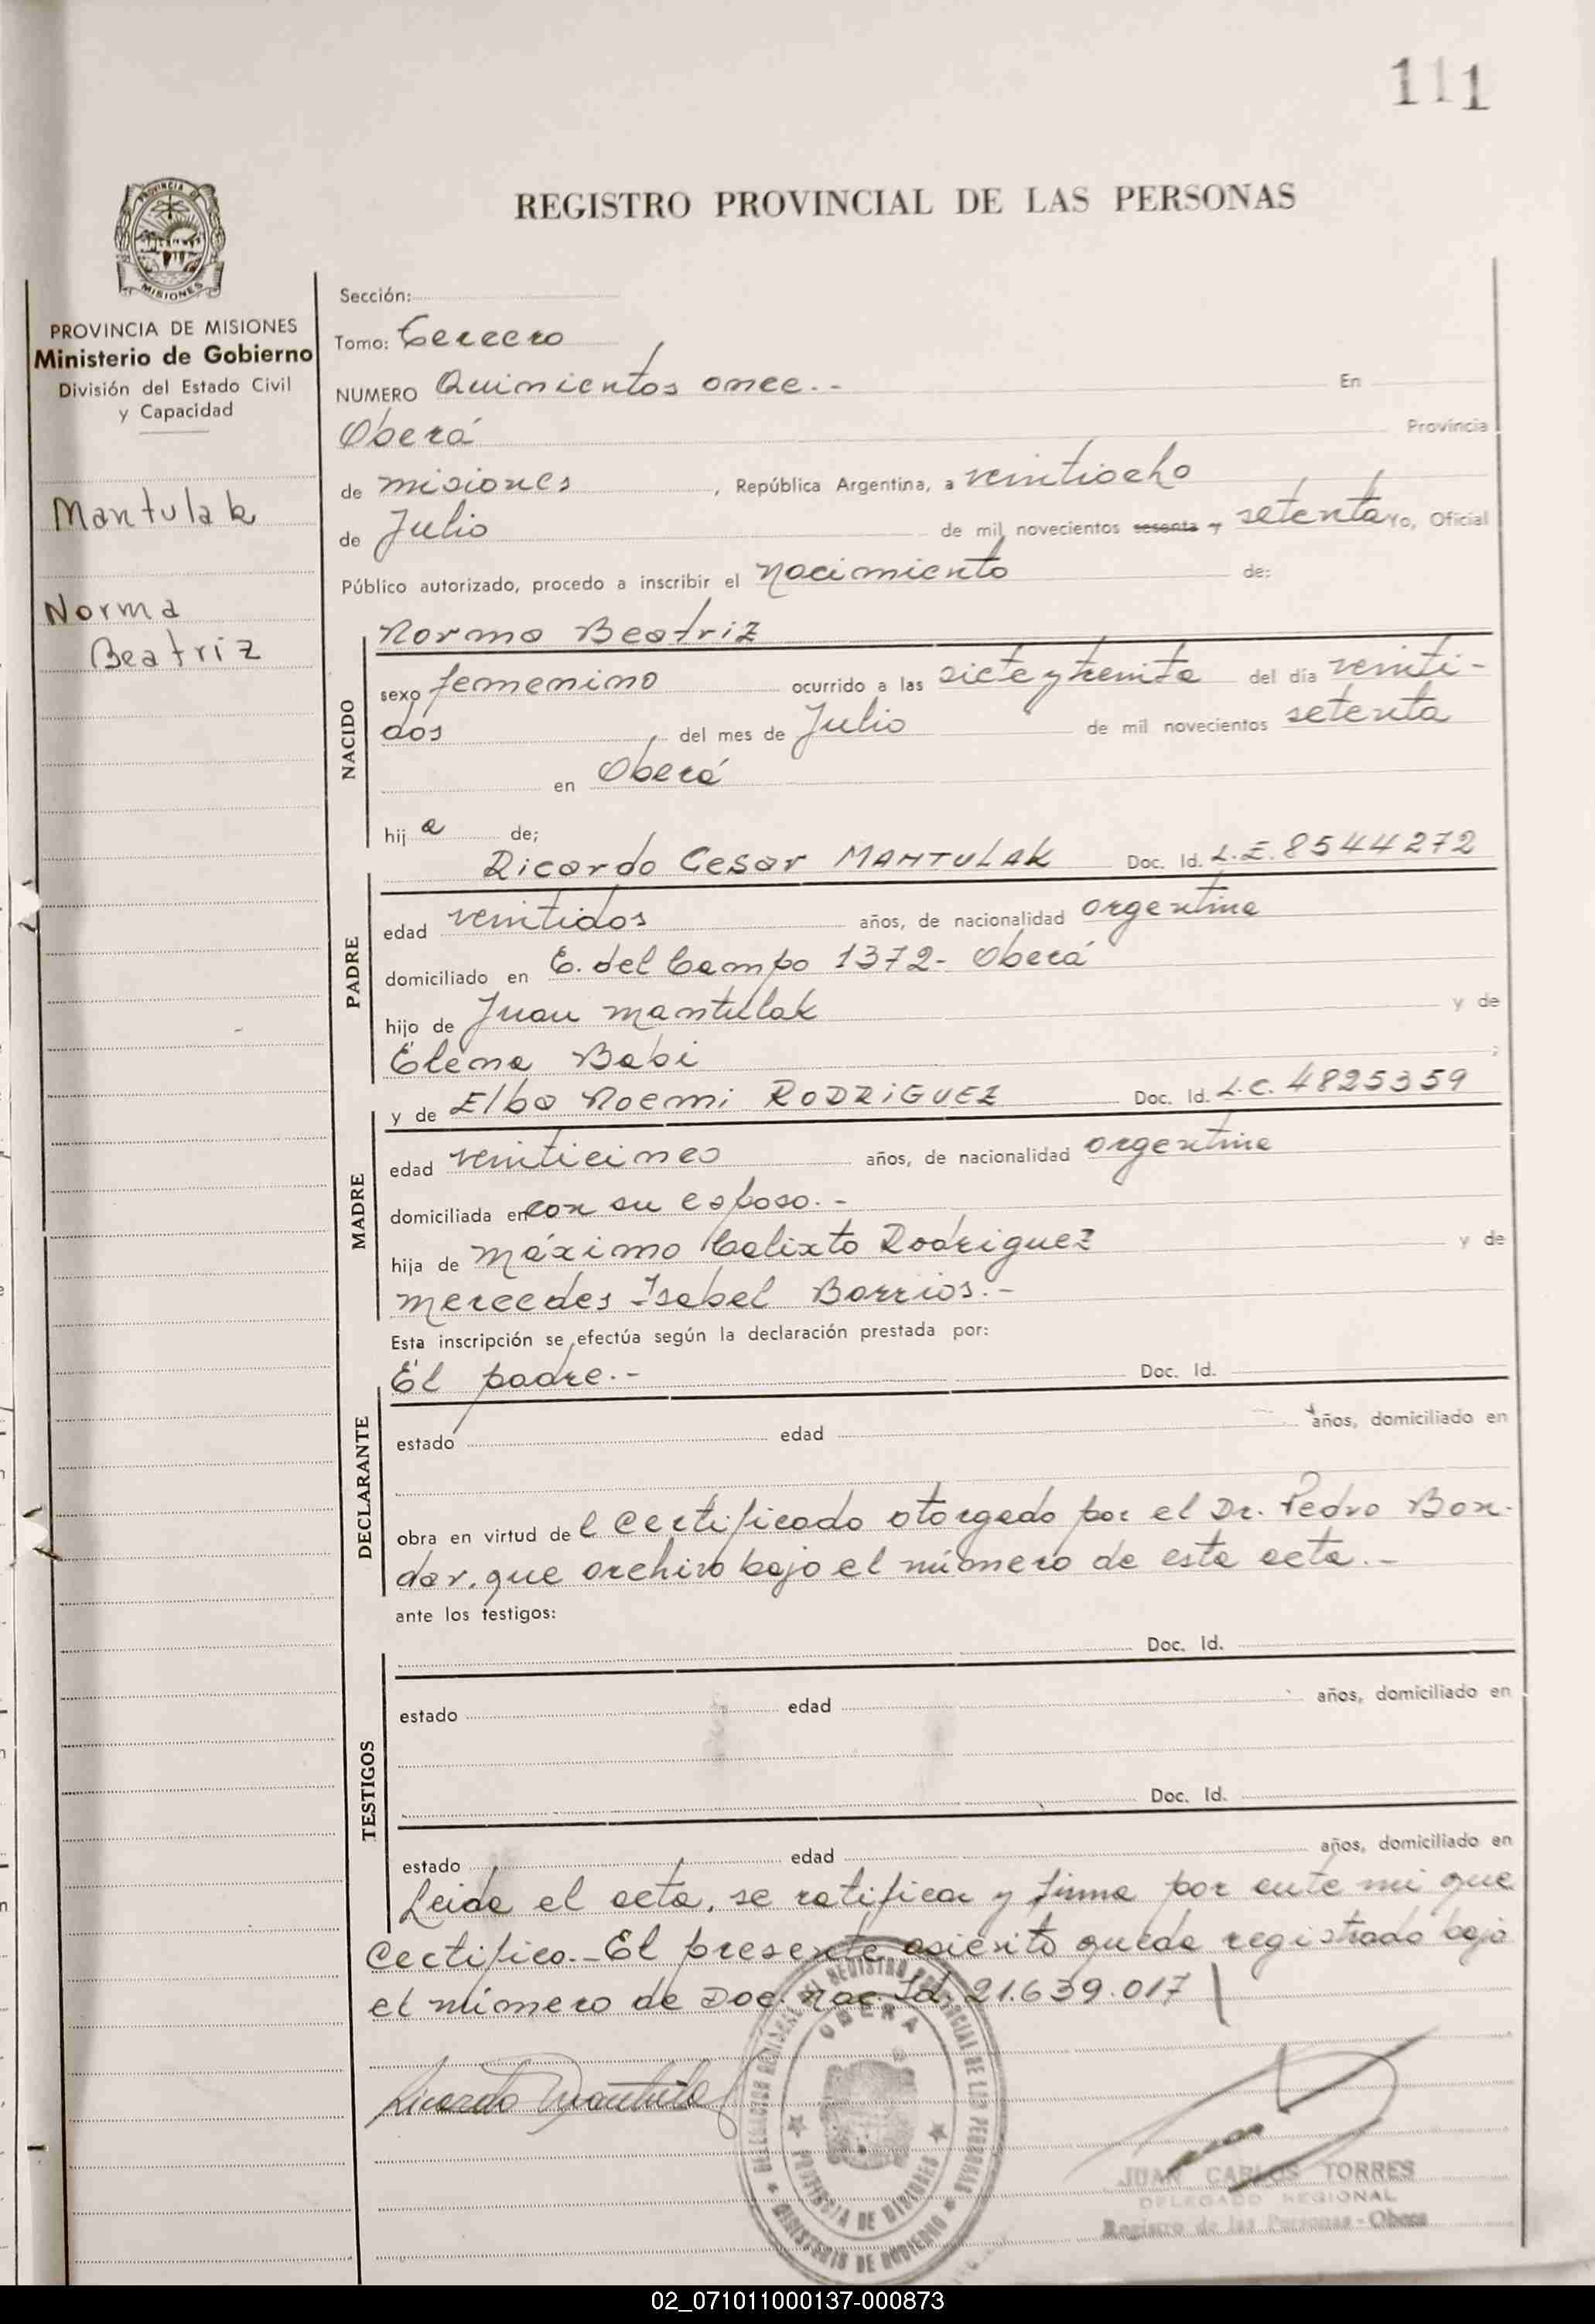 111
REGISTRO PROVINCIAL DE LAS PERSONAS
PROVINCIA DE
MISIONES
PROVINCIA DE MISIONES
Ministerio de Gobierno
División del Estado Civil
y Capacidad
Mantulak
Norma
Beatriz
Sección:
Tomo: Tercero
NUMERO Quinientos once.- En
Oberá Provincia
de misiones, República Argentina, a veintiocho
de Julio de mil novecientos sesenta y setenta Yo, Oficial
Público autorizado, procedo a inscribir el nacimiento de:
NACIDO
Norma Beatriz
sexo femenino ocurrido a las siete y treinta del día veinti-
dos, del mes de Julio de mil novecientos setenta
en Oberá
hij a de;
PADRE
Ricardo Cesar MANTULAK Doc. Id. L.E. 8544272
edad veintidos años, de nacionalidad argentina
domiciliado en E. del Campo 1372- Oberá
hijo de Juan Mantulak y de
Elena Babi;
MADRE
y de Elba Noemi RODRIGUEZ Doc. Id. L.C. 4825359
edad veinticinco años, de nacionalidad argentina
domiciliada en con su esposo.-
hija de Máximo Calixto Rodriguez y de
Mercedes Isabel Barrios.-
Esta inscripción se efectúa según la declaración prestada por:
DECLARANTE
El padre.- Doc. Id.
estado edad años, domiciliado en
obra en virtud del certificado otorgado por el Dr. Pedro Bon-
dar, que archivo bajo el número de esta acta.-
ante los testigos:
TESTIGOS
Doc. Id.
estado edad años, domiciliado en
Doc. Id.
estado edad años, domiciliado en
Leida el acta, se ratifica y firma por ante mi que
certifico.- El presente asiento queda registrado bajo
el número de Doc. Nac. Id. 21.639.017
Ricardo Mantulak
OBERA
PROVINCIA DE MISIONES
MINISTERIO DE GOBIERNO
JUAN CARLOS TORRES
DELEGADO REGIONAL
Registro de las Personas - Obera
02_071011000137-000873